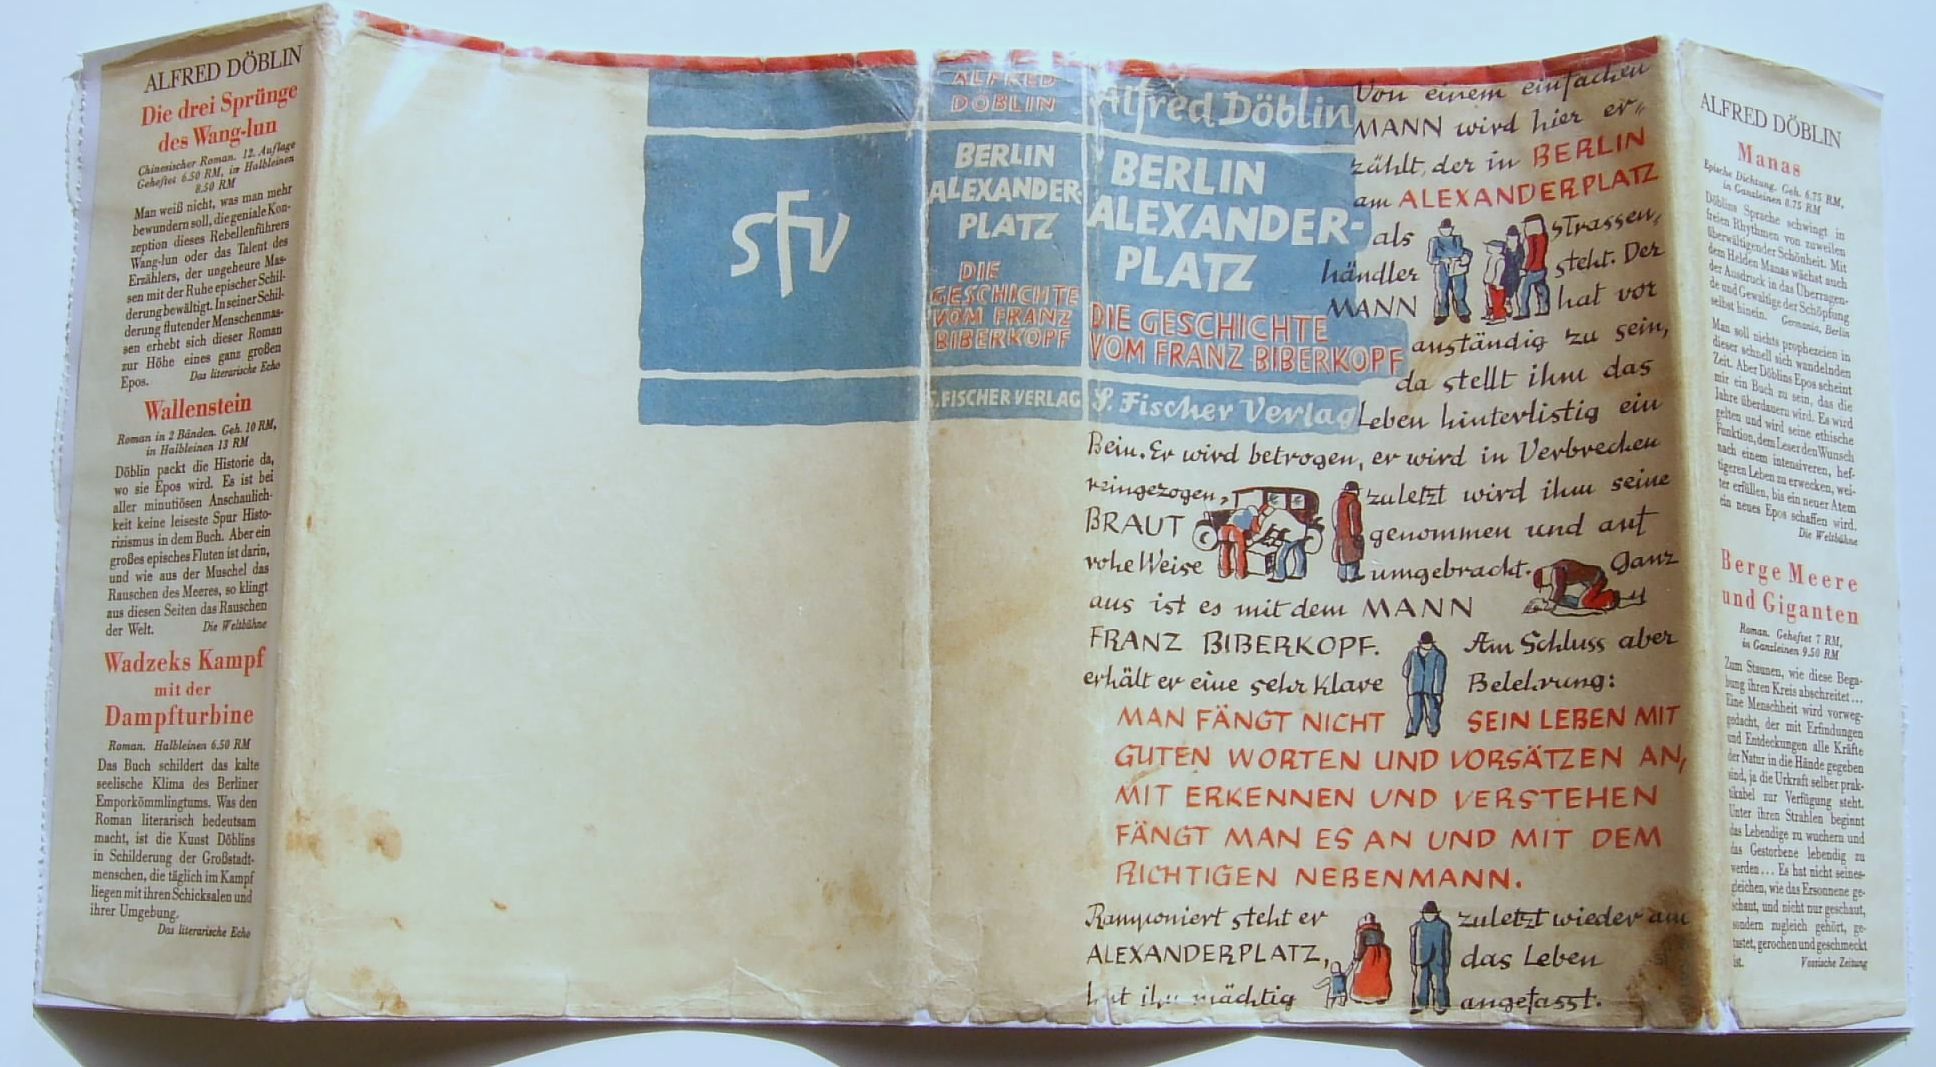 ALFRED DÖBLIN
Die drei Sprünge
des Wang-lun
Chinesischer Roman. 12. Auflage
Geheftet 6.50 RM, in Halbleinen
8.50 RM
Man weiß nicht, was man mehr
bewundern soll, die geniale Kon-
zeption dieses Rebellenführers
Wang-lun oder das Talent des
Erzählers, der ungeheure Mas-
sen mit der Ruhe epischer Schil-
derung bewältigt. In seiner Schil-
derung flutender Menschenmas-
sen erhebt sich dieser Roman
zur Höhe eines ganz großen
Epos. Das literarische Echo
Wallenstein
Roman in 2 Bänden. Geh. 10 RM,
in Halbleinen 13 RM
Döblin packt die Historie da,
wo sie Epos wird. Es ist bei
aller minutiösen Anschaulich-
keit keine leiseste Spur Histo-
rizismus in dem Buch. Aber ein
großes episches Fluten ist darin,
und wie aus der Muschel das
Rauschen des Meeres, so klingt
aus diesen Seiten das Rauschen
der Welt. Die Weltbühne
Wadzeks Kampf
mit der
Dampfturbine
Roman. Halbleinen 6.50 RM
Das Buch schildert das kalte
seelische Klima des Berliner
Emporkömmlingtums. Was den
Roman literarisch bedeutsam
macht, ist die Kunst Döblins
in Schilderung der Großstadt-
menschen, die täglich im Kampf
liegen mit ihren Schicksalen und
ihrer Umgebung.
Das literarische Echo
SFV
ALFRED
DÖBLIN
BERLIN
ALEXANDER-
PLATZ
DIE
GESCHICHTE
VOM FRANZ
BIBERKOPF
S. FISCHER VERLAG
Alfred Döblin
BERLIN
ALEXANDER-
PLATZ
DIE GESCHICHTE
VOM FRANZ BIBERKOPF
S. Fischer Verlag
Von einem einfachen
MANN wird hier er-
zählt, der in BERLIN
am ALEXANDERPLATZ
als Strassen-
händler steht. Der
MANN hat vor
anständig zu sein,
da stellt ihm das
Leben hinterlistig ein
Bein. Er wird betrogen, er wird in Verbrechen
reingezogen, zuletzt wird ihm seine
BRAUT genommen und auf
rohe Weise umgebracht. Ganz
aus ist es mit dem MANN
FRANZ BIBERKOPF. Am Schluss aber
erhält er eine sehr klare Belehrung:
MAN FÄNGT NICHT SEIN LEBEN MIT
GUTEN WORTEN UND VORSÄTZEN AN,
MIT ERKENNEN UND VERSTEHEN
FÄNGT MAN ES AN UND MIT DEM
RICHTIGEN NEBENMANN.
Ramponiert steht er zuletzt wieder am
ALEXANDERPLATZ, das Leben
hat ihn mächtig angefasst.
ALFRED DÖBLIN
Manas
Epische Dichtung. Geh. 6.75 RM,
in Ganzleinen 8.75 RM
Döblins Sprache schwingt in
freien Rhythmen von zuweilen
überwältigender Schönheit. Mit
dem Helden Manas wächst auch
der Ausdruck in das Überragen-
de und Gewaltige der Schöpfung
selbst hinein. Germania, Berlin
Man soll nichts prophezeien in
dieser schnell sich wandelnden
Zeit. Aber Döblins Epos scheint
mir ein Buch zu sein, das die
Jahre überdauern wird. Es wird
gelten und wird seine ethische
Funktion, dem Leser den Wunsch
nach einem intensiveren, hef-
tigeren Leben zu erwecken, wei-
ter erfüllen, bis ein neuer Atem
ein neues Epos schaffen wird.
Die Weltbühne
Berge Meere
und Giganten
Roman. Geheftet 7 RM,
in Ganzleinen 9.50 RM
Zum Staunen, wie diese Bega-
bung ihren Kreis abschreitet...
Eine Menschheit wird vorweg-
gedacht, der mit Erfindungen
und Entdeckungen alle Kräfte
der Natur in die Hände gegeben
sind, ja die Urkraft selber prak-
tikabel zur Verfügung steht.
Unter ihren Strahlen beginnt
das Lebendige zu wuchern und
das Gestorbene lebendig zu
werden... Es hat nicht seines-
gleichen, wie das Ersonnene ge-
schaut, und nicht nur geschaut,
sondern zugleich gehört, ge-
tastet, gerochen und geschmeckt
ist. Vossische Zeitung